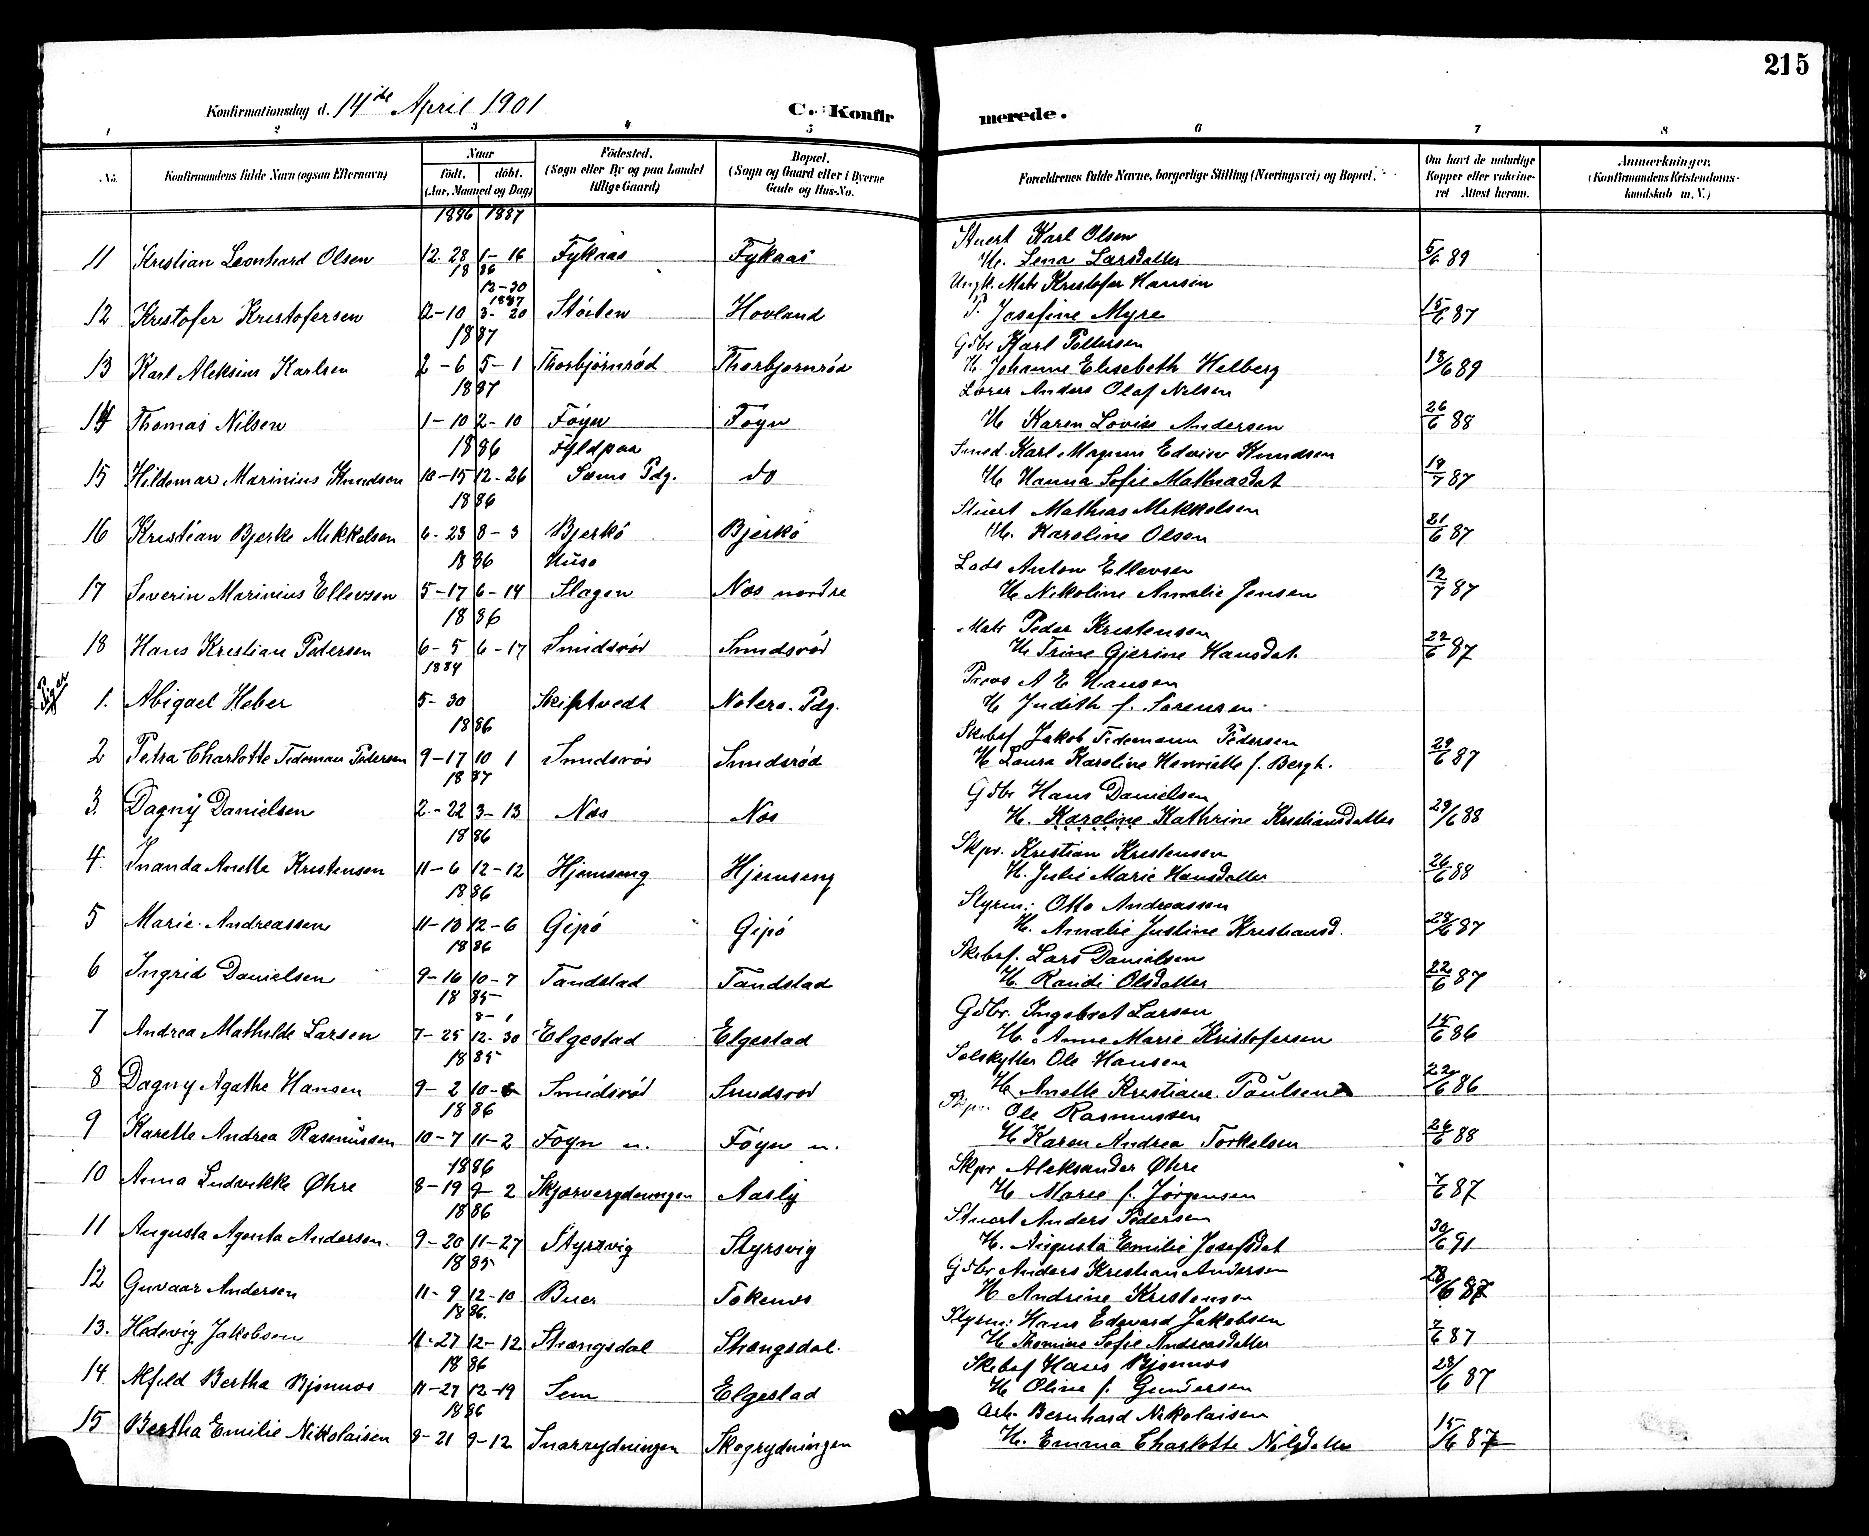 215
Konfirmationsdag d. 14de April 1901 C. Konfirmerede.
1 2 3 4 5 6 7 8
No. Konfirmandens fulde Navn (ogsaa Efternavn) Naar født. døbt. (Aar, Maaned og Dag) Fødested. (Sogn eller By og paa Landet tillige Gaard) Bopæl. (Sogn og Gaard eller i Byerne Gade og Hus-No. Forældrenes fulde Navne, borgerlige Stilling (Næringsvei) og Bopæl. Om havt de naturlige Kopper eller vaccineret Attest herom. Anmærkninger. (Konfirmandens Kristendomskundskab m. V.)
1886 1887
Stuert Karl Olsen
11 Kristian Leonhard Olsen 12-28 1-16 Fykaas Fykaas H. Lena Larsdatter 5/6 89
1886
12-30
1887
Ungk. Mats Kristofer Hansen
12 Kristofer Kristofersen 12-10 3-20 Støiten Hovland P. Josefine Myre 15/6 87
1887
Gdbr Karl Pettersen
13 Karl Aleksius Karlsen 2-6 5-1 Thorbjørnrød Thorbjørnrød H. Johanne Elisebeth Helberg 18/6 89
1887
Lærer Anders Olaf Nilsen
14 Thomas Nilsen 1-10 2-10 Føyn Føyn H Karen Lovise Andersen 26/6 88
1886 Fyldpaa
Smed. Karl Magnus Edvin Knudsen
15 Hildemar Marinius Knudsen 10-15 12-26 Sems Pdg. do H Hanna Sofie Mathiasdat 19/7 87
1886
Stuert Mathias Mikkelsen
16 Kristian Bjerke Mikkelsen 6-23 8-3 Bjerkø Bjerkø H. Karoline Olsen 21/6 87
1886 Husø
Lods Anton Ellevsen
17 Severin Marinius Ellevsen 5-17 6-14 Slagen Næs nordre H Nikoline Amalie Jensen 12/7 87
1886
Mats Peder Kristensen
18 Hans Kristian Pedersen 6-5 6-17 Smidsrød Smidsrød H Trine Gjerine Hansdat. 22/6 87
1884
Piger
Provs A E Hansen
1. Abigael Heber 5-30 Skiptvedt Nøterø Pdg. H Judith f. Sørensen
1886
Skibsf Jakob Tidemann Pedersen
2 Petra Charlotte Tideman Pedersen 9-17 10 1 Smidsrød Smidsrød H Laura Karoline Henriette f. Bergh. 29/6 87
1887
Gdbr Hans Danielsen
3. Dagny Danielsen 2-22 3-13 Næs Næs H. Karoline Kathrine Kristiansdatter 29/6 88
1886
Skpr. Kristian Kristensen
4. Inanda Anette Kristensen 11-6 12-12 Hjemseng Hjemseng H. Julie Marie Hansdatter 26/6 88
1886
Styrm: Otto Andreassen
5 Marie Andreassen 11-10 12-6 Gipø Gipø H. Amalie Justine Kristiansd. 28/6 87
1886
Skibsf. Lars Danielsen
6 Ingrid Danielsen 9-16 10-7 Tandstad Tandstad H. Randi Olsdatter 22/6 87
1885
8-1
Gdbr. Ingebret Larsen
7 Andrea Mathilde Larsen 7-25 12-30 Elgestad Elgestad H. Anne Marie Kristofersen 15/6 86
1885
Sælskytter Ole Hansen
8 Dagny Agathe Hansen 9-2 10- Smidsrød Smidsrød H Anette Kristiane Paulsen 22/6 86
1886
Skpr. Ole Rasmussen
9 Karette Andrea Rasmussen 10-7 11-2 Føyn n. Føyn n. H Karen Andrea Torkelsen 26/6 88
1886
Skpr Aleksander Øhre
10 Anna Ludvikke Øhre 8-19 9-2 Skjærverydningen Aasly H Marie f. Jørgensen 7/6 87
1886
Stuert Anders Pedersen
11 Augusta Agenta Andersen 9-20 11-27 Styrsvig Styrsvig H. Augusta Emilie Josefsdat 30/6 91
1885
Gdbr Anders Kristian Andersen
12 Guvaar Andersen 11-9 12-10 Buer Tokenes H Andrine Kristensen 28/6 87
1886.
Styrm: Hans Edevard Jakobsen
13. Hedevig Jakobsen 11-27 12-12 Strængsdal Strængsdal. H Thomine Sofie Andreasdatter 7/6 87
1886
Skibsf Hans Bjønnes
14. Alfild Bertha Bjønnes 11-27 12-19 Sem Elgestad H Oline f. Gundersen 28/6 87
1886
Arb. Bernhard Nikolaisen
15 Bertha Emilie Nikolaisen 8-21 9-12 Snarrydningen Skogrydningen H. Emma Charlotte Nilsdatter 15/6 87